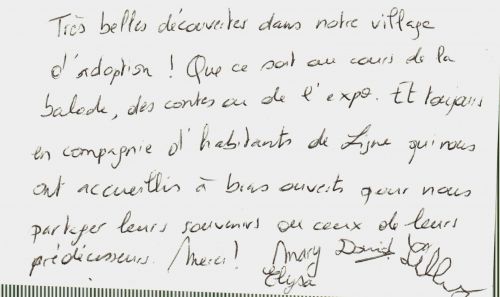 Très belles découvertes dans notre village
d'adoption ! Que ce soit au cours de la
balade, des contes ou de l'expo. Et toujours
en compagnie d'habitants de Ligne qui nous
ont accueillis à bras ouverts pour nous
partager leurs souvenirs ou ceux de leurs
prédécesseurs. Merci ! Mary David
Elysa